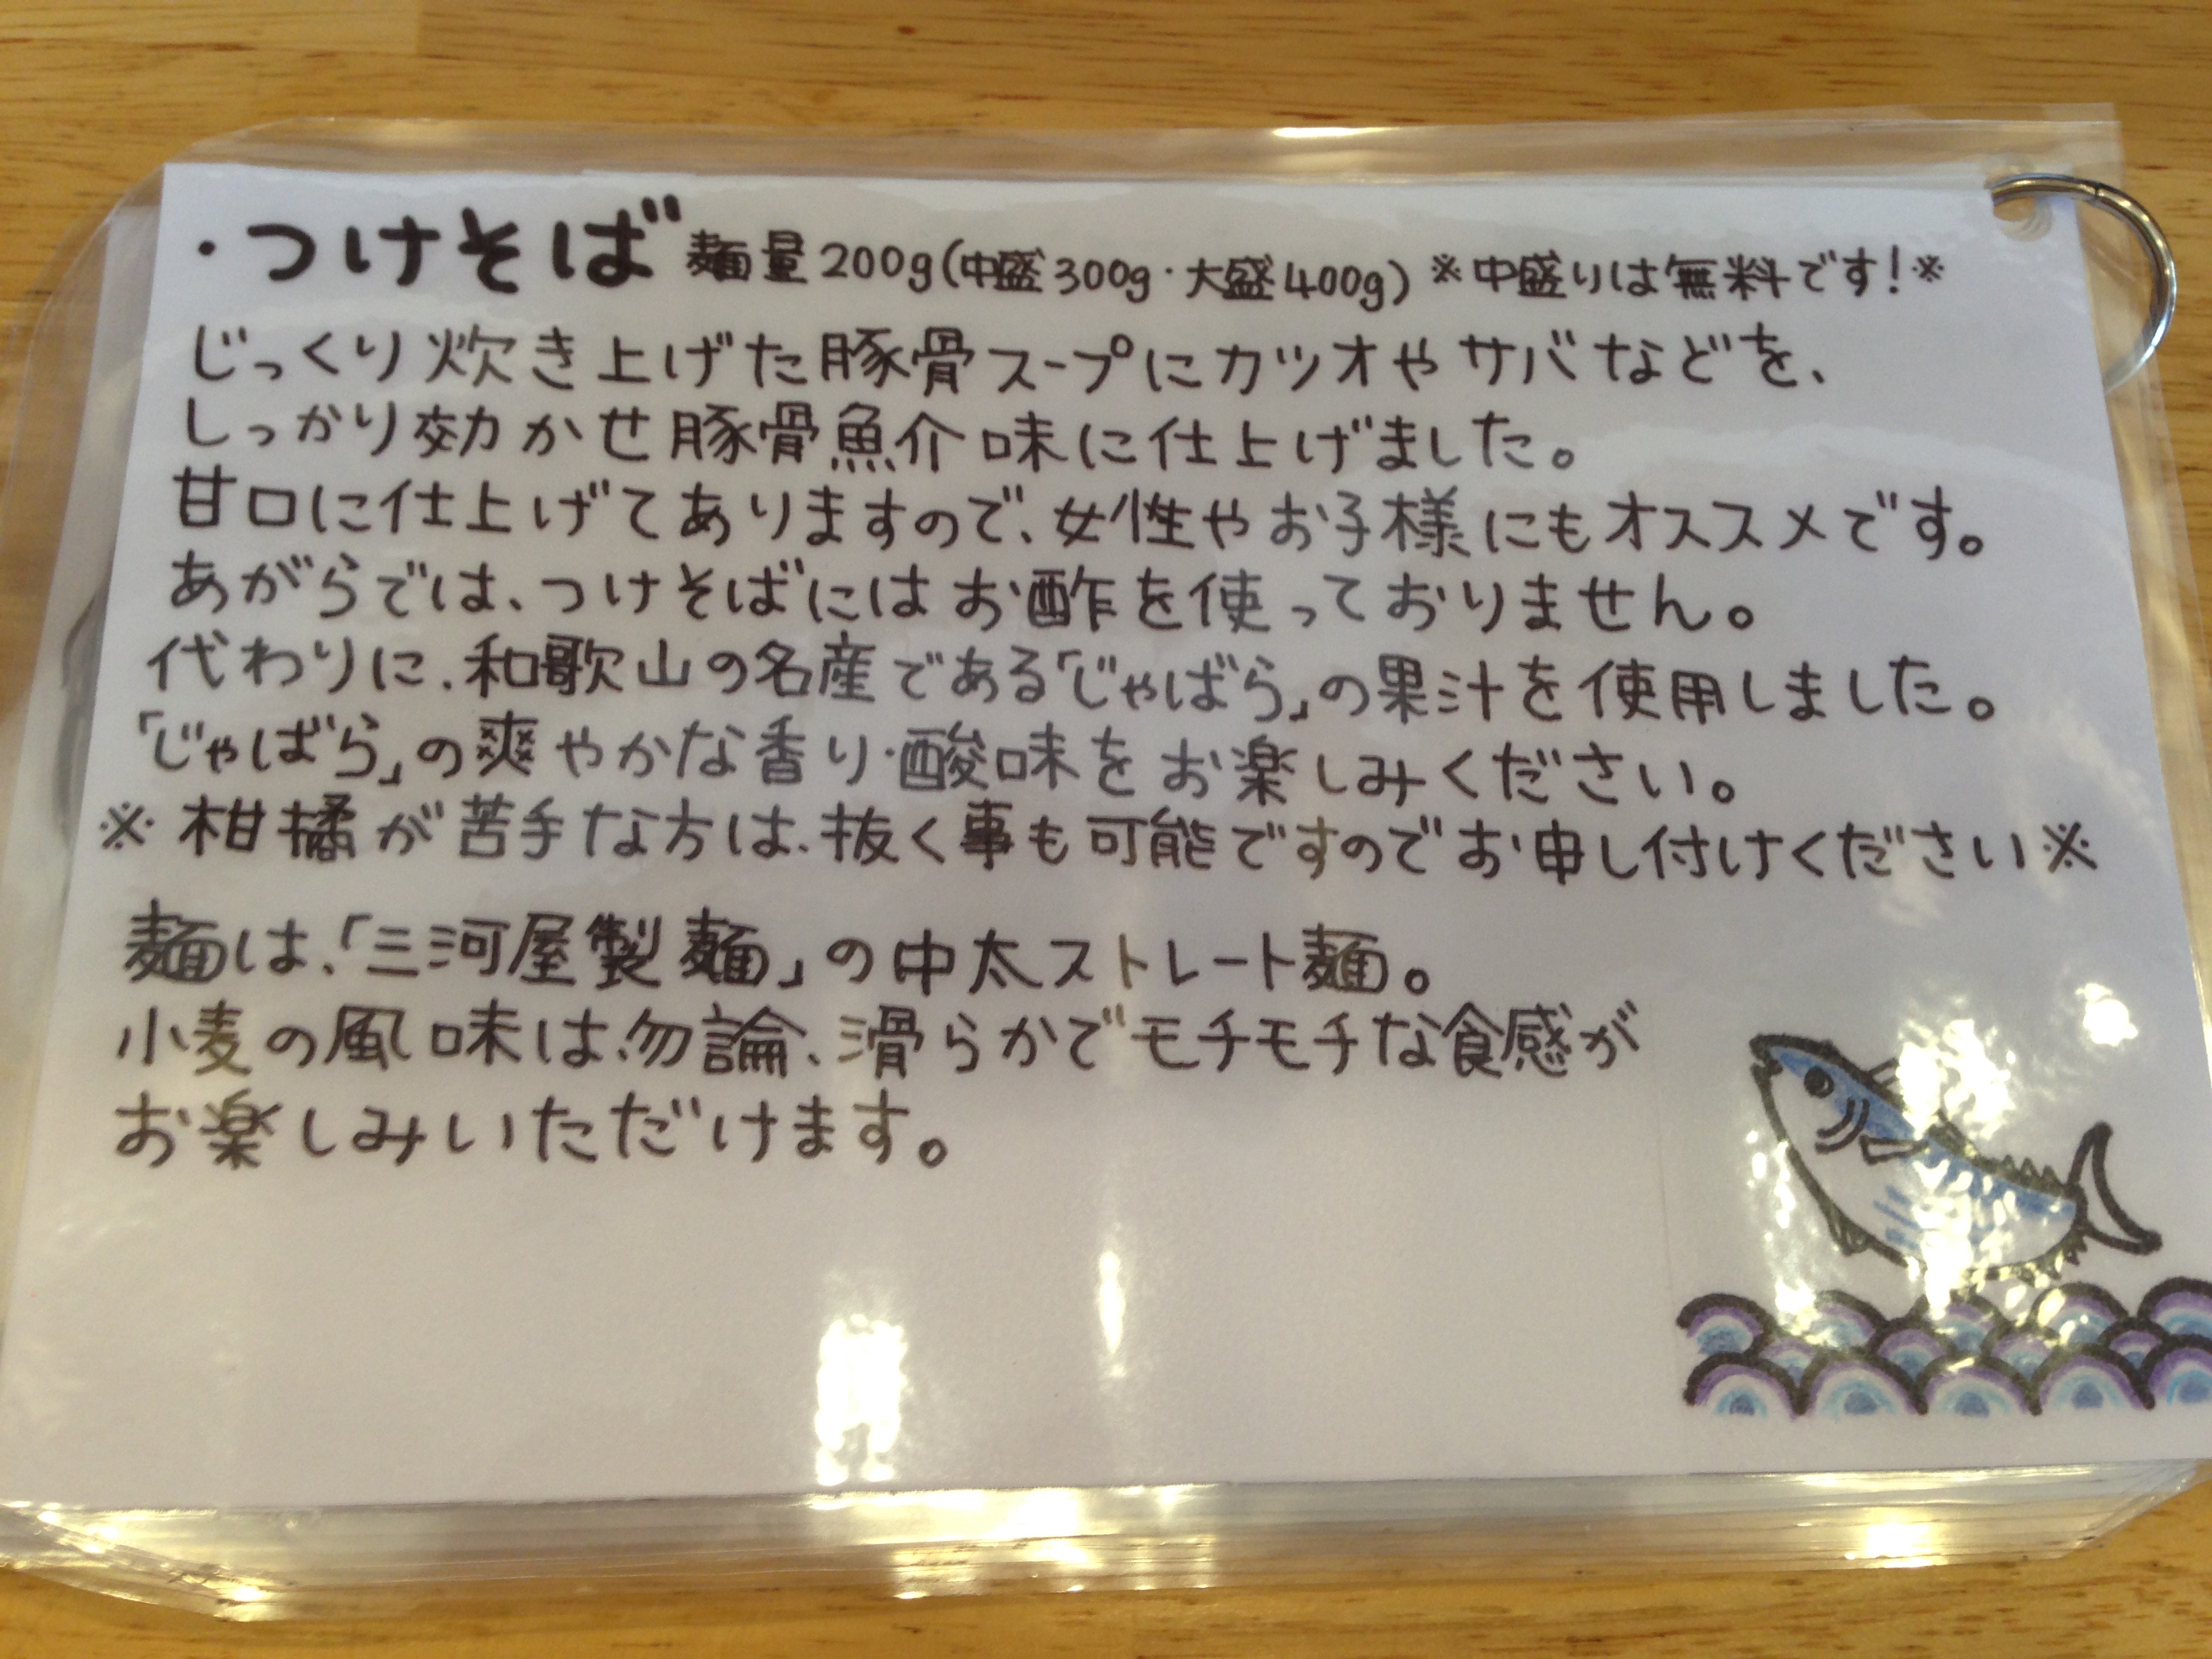 ・つけそば 麺量200g(中盛300g・大盛400g) ※中盛りは無料です!※
じっくり炊き上げた豚骨スープにカツオやサバなどを、
しっかり効かせ豚骨魚介味に仕上げました。
甘口に仕上げてありますので、女性やお子様にもオススメです。
あがらでは、つけそばにはお酢を使っておりません。
代わりに、和歌山の名産である「じゃばら」の果汁を使用しました。
「じゃばら」の爽やかな香り・酸味をお楽しみください。
※柑橘が苦手な方は、抜く事も可能ですのでお申し付けください※
麺は、「三河屋製麺」の中太ストレート麺。
小麦の風味は勿論、滑らかでモチモチな食感が
お楽しみいただけます。